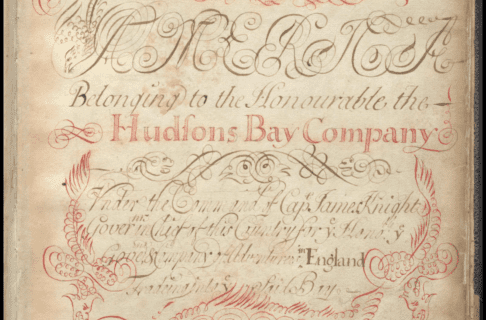 AMERICA
Belonging to the Honourable, the
Hudsons Bay Company
Under the Command of Cap. James Knight
Govern in Chief of this Country for y Hon
Company of Adventurers in England
Trading into Bay